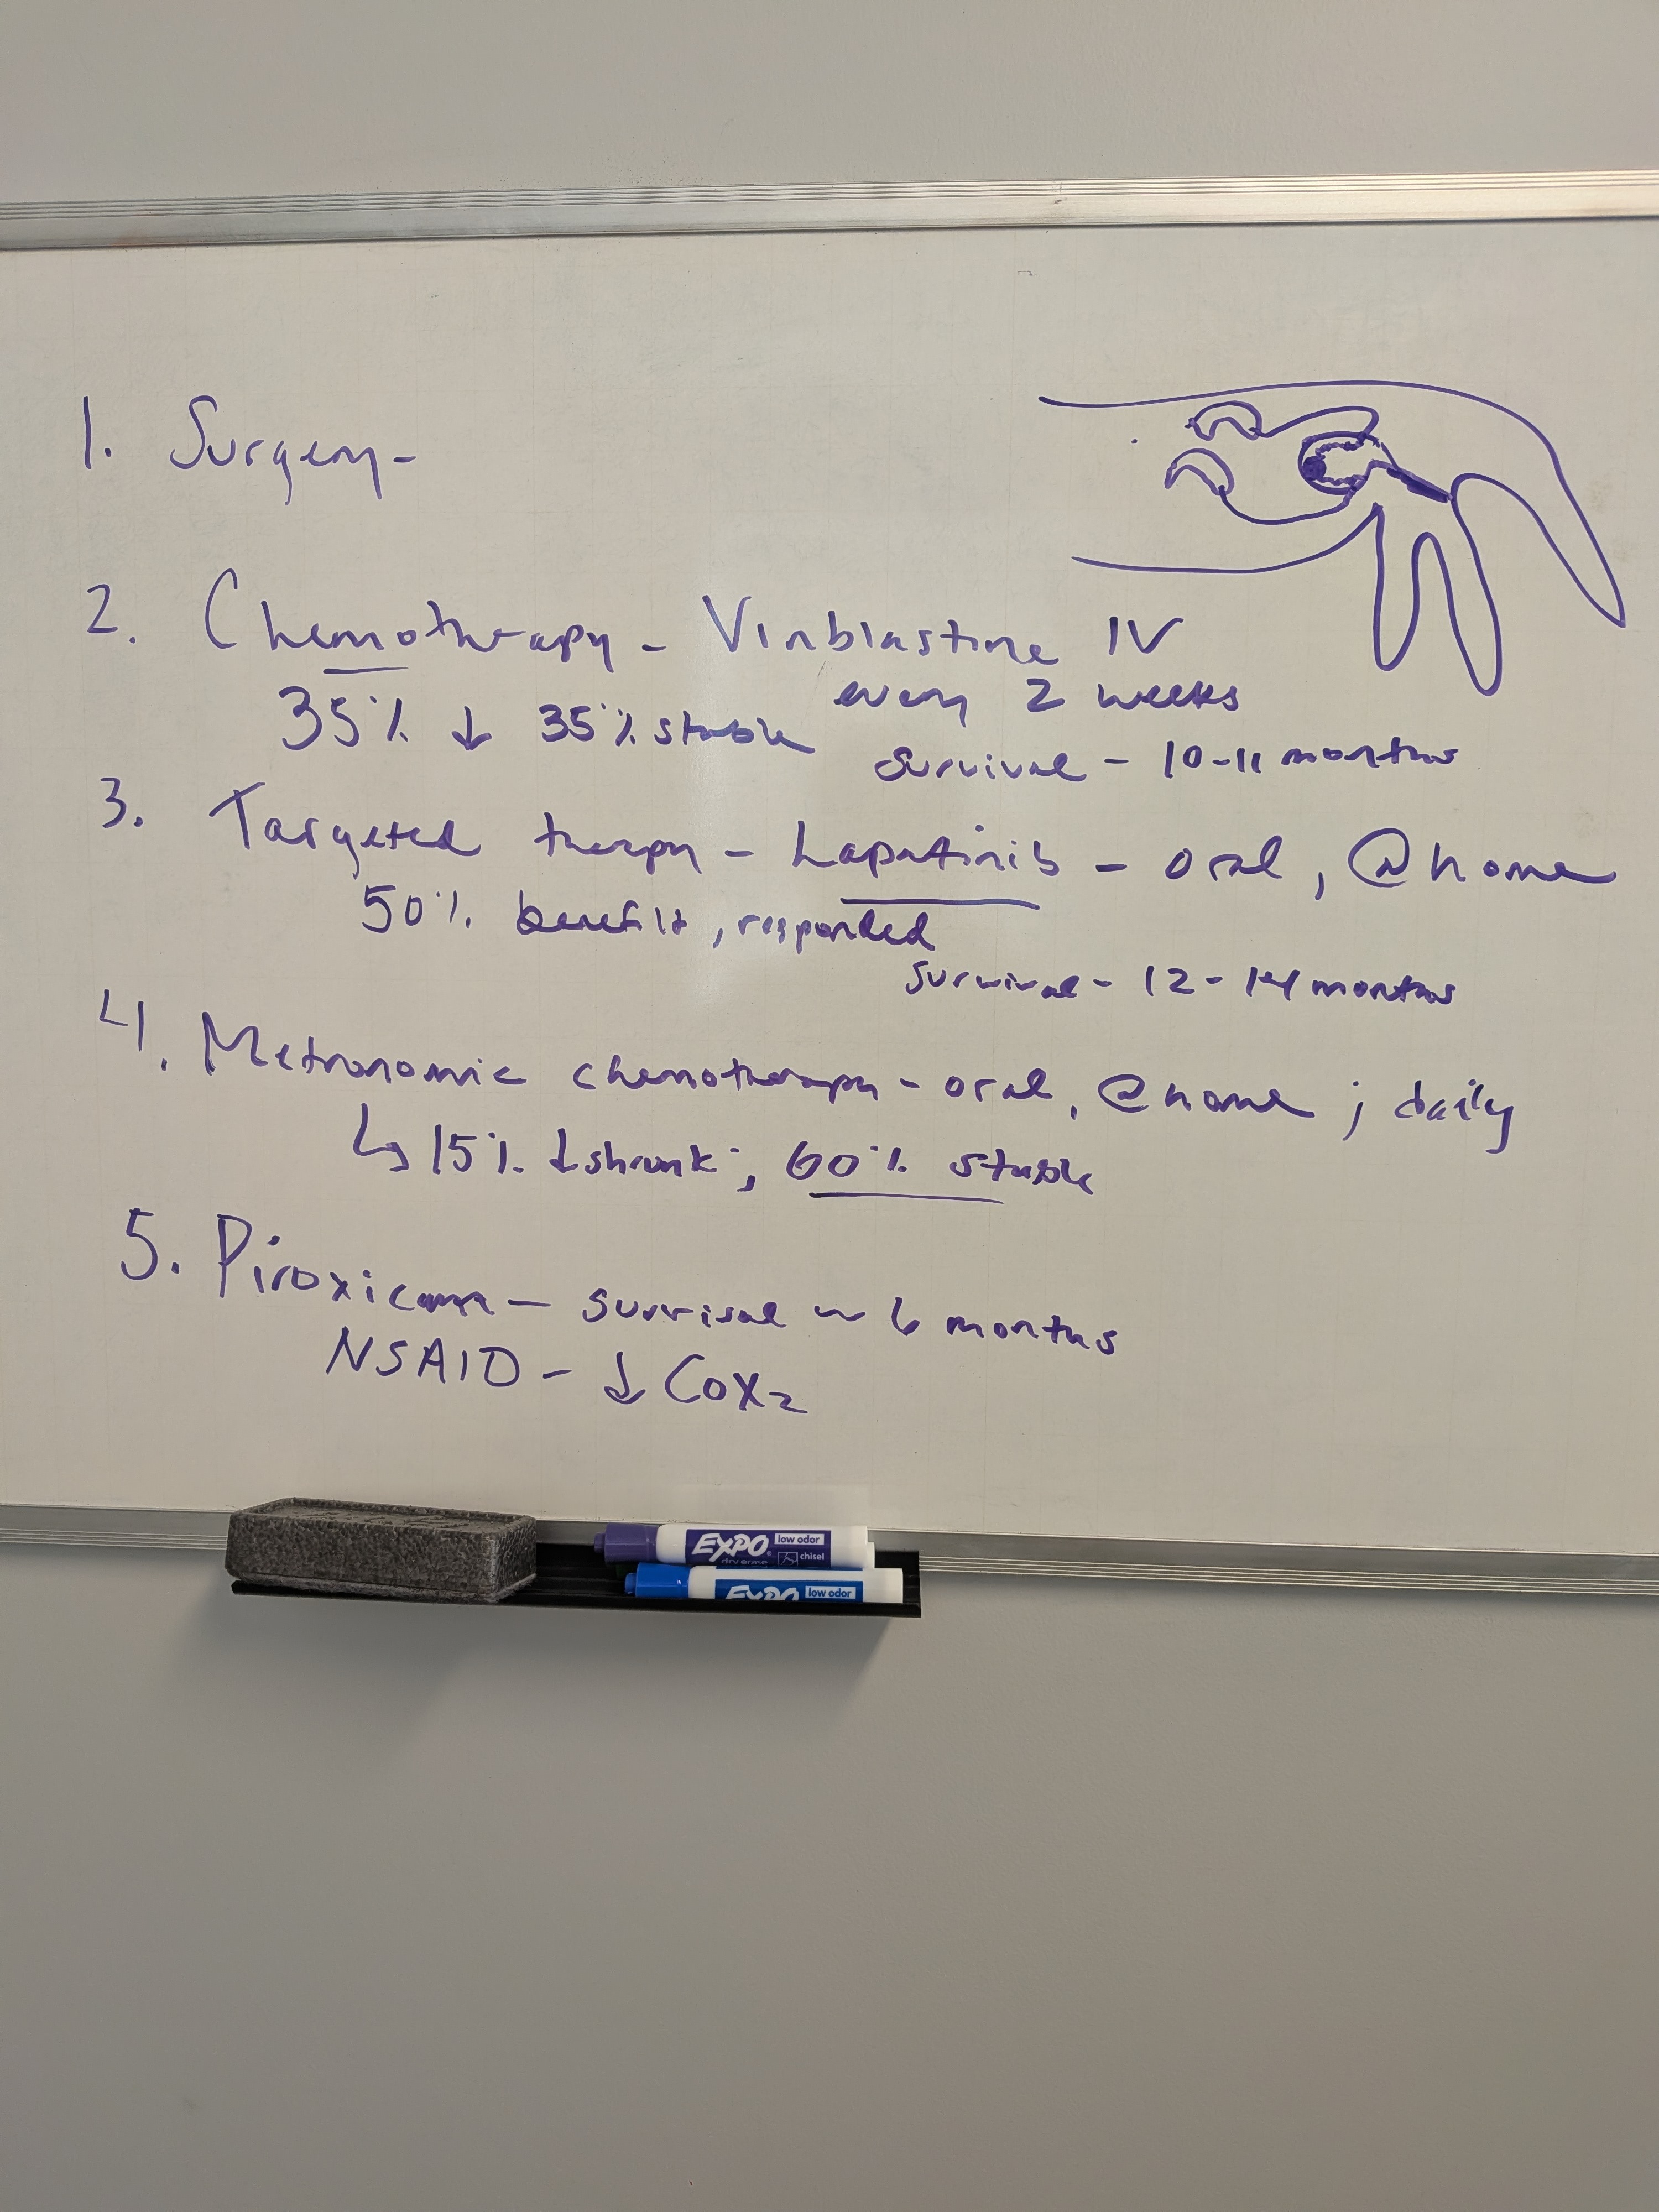 1. Surgery-
2. Chemotherapy - Vinblastine IV
every 2 weeks
35% ↓ 35% stable
survival - 10-11 months
3. Targeted therapy - Lapatinib - oral, @home
50% benefit, responded
survival - 12-14 months
4. Metronomic chemotherapy - oral, @home ; daily
↳ 15% ↓ shrunk ; 60% stable
5. Piroxicam - survival ~ 6 months
NSAID - ↓ COX2
EXPO low odor
dry erase chisel
EXPO low odor